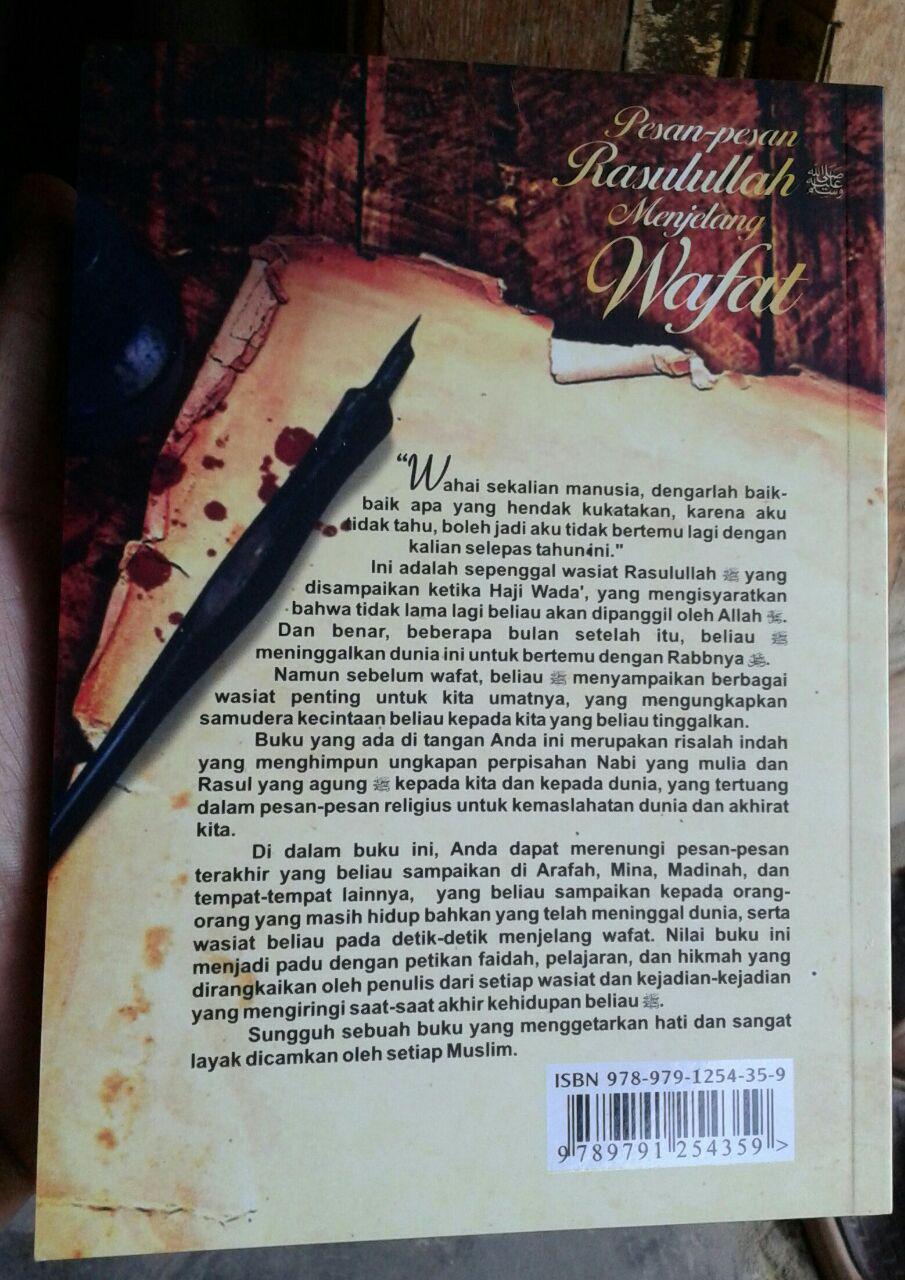 Pesan-pesan
Rasulullah ﷺ
Menjelang
Wafat
"Wahai sekalian manusia, dengarlah baik-
baik apa yang hendak kukatakan, karena aku
tidak tahu, boleh jadi aku tidak bertemu lagi dengan
kalian selepas tahun ini."
Ini adalah sepenggal wasiat Rasulullah ﷺ yang
disampaikan ketika Haji Wada', yang mengisyaratkan
bahwa tidak lama lagi beliau akan dipanggil oleh Allah.
Dan benar, beberapa bulan setelah itu, beliau ﷺ
meninggalkan dunia ini untuk bertemu dengan Rabbnya.
Namun sebelum wafat, beliau ﷺ menyampaikan berbagai
wasiat penting untuk kita umatnya, yang mengungkapkan
samudera kecintaan beliau kepada kita yang beliau tinggalkan.
Buku yang ada di tangan Anda ini merupakan risalah indah
yang menghimpun ungkapan perpisahan Nabi yang mulia dan
Rasul yang agung ﷺ kepada kita dan kepada dunia, yang tertuang
dalam pesan-pesan religius untuk kemaslahatan dunia dan akhirat
kita.
Di dalam buku ini, Anda dapat merenungi pesan-pesan
terakhir yang beliau sampaikan di Arafah, Mina, Madinah, dan
tempat-tempat lainnya, yang beliau sampaikan kepada orang-
orang yang masih hidup bahkan yang telah meninggal dunia, serta
wasiat beliau pada detik-detik menjelang wafat. Nilai buku ini
menjadi padu dengan petikan faidah, pelajaran, dan hikmah yang
dirangkaikan oleh penulis dari setiap wasiat dan kejadian-kejadian
yang mengiringi saat-saat akhir kehidupan beliau ﷺ.
Sungguh sebuah buku yang menggetarkan hati dan sangat
layak dicamkan oleh setiap Muslim.
ISBN 978-979-1254-35-9
9 789791 254359 >